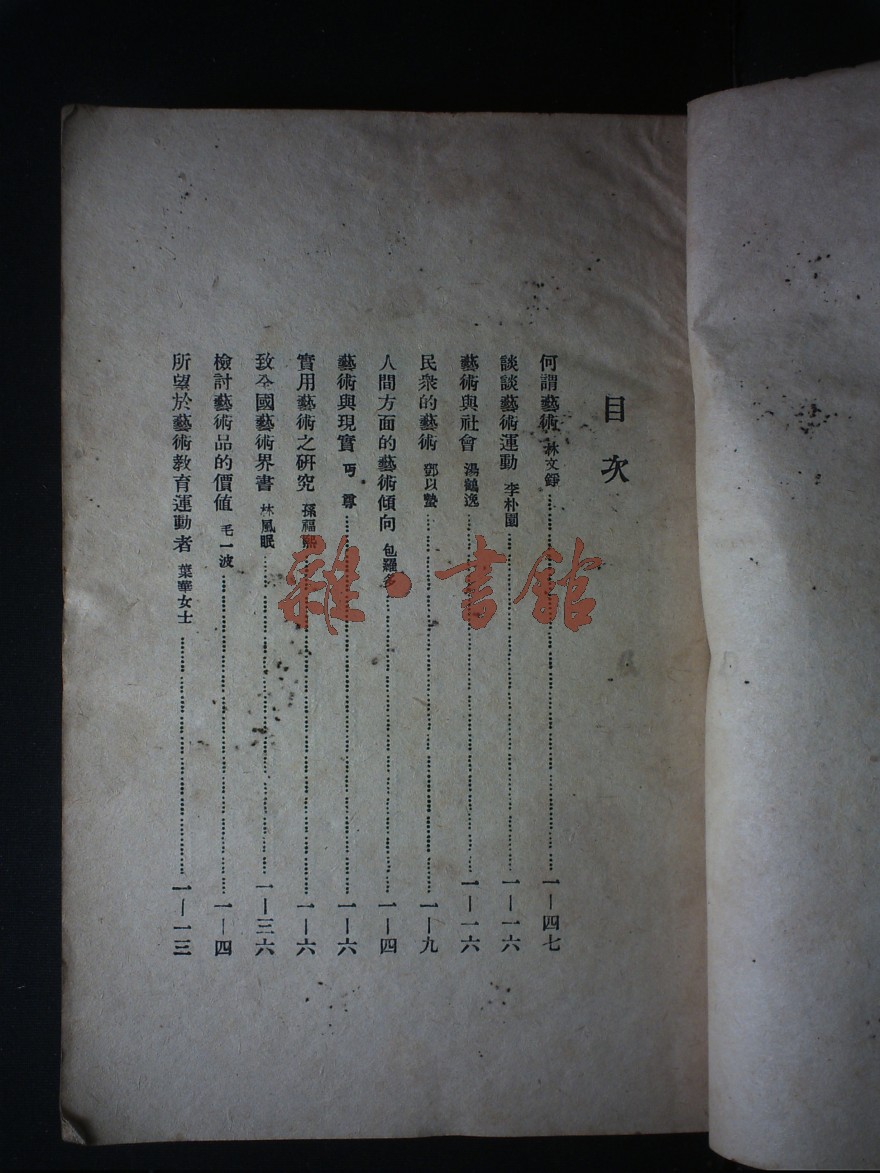 目次
何謂藝術 林文錚……一—四七
談談藝術運動 李朴園……一—一六
藝術與社會 湯鶴逸……一—一六
民衆的藝術 鄧以蟄……一—九
人間方面的藝術傾向 包羅多……一—四
藝術與現實 丏尊……一—六
實用藝術之研究 孫福熙……一—六
致全國藝術界書 林風眠……一—三六
檢討藝術品的價値 毛一波……一—四
所望於藝術教育運動者 葉華女士……一—一三
雜·書館